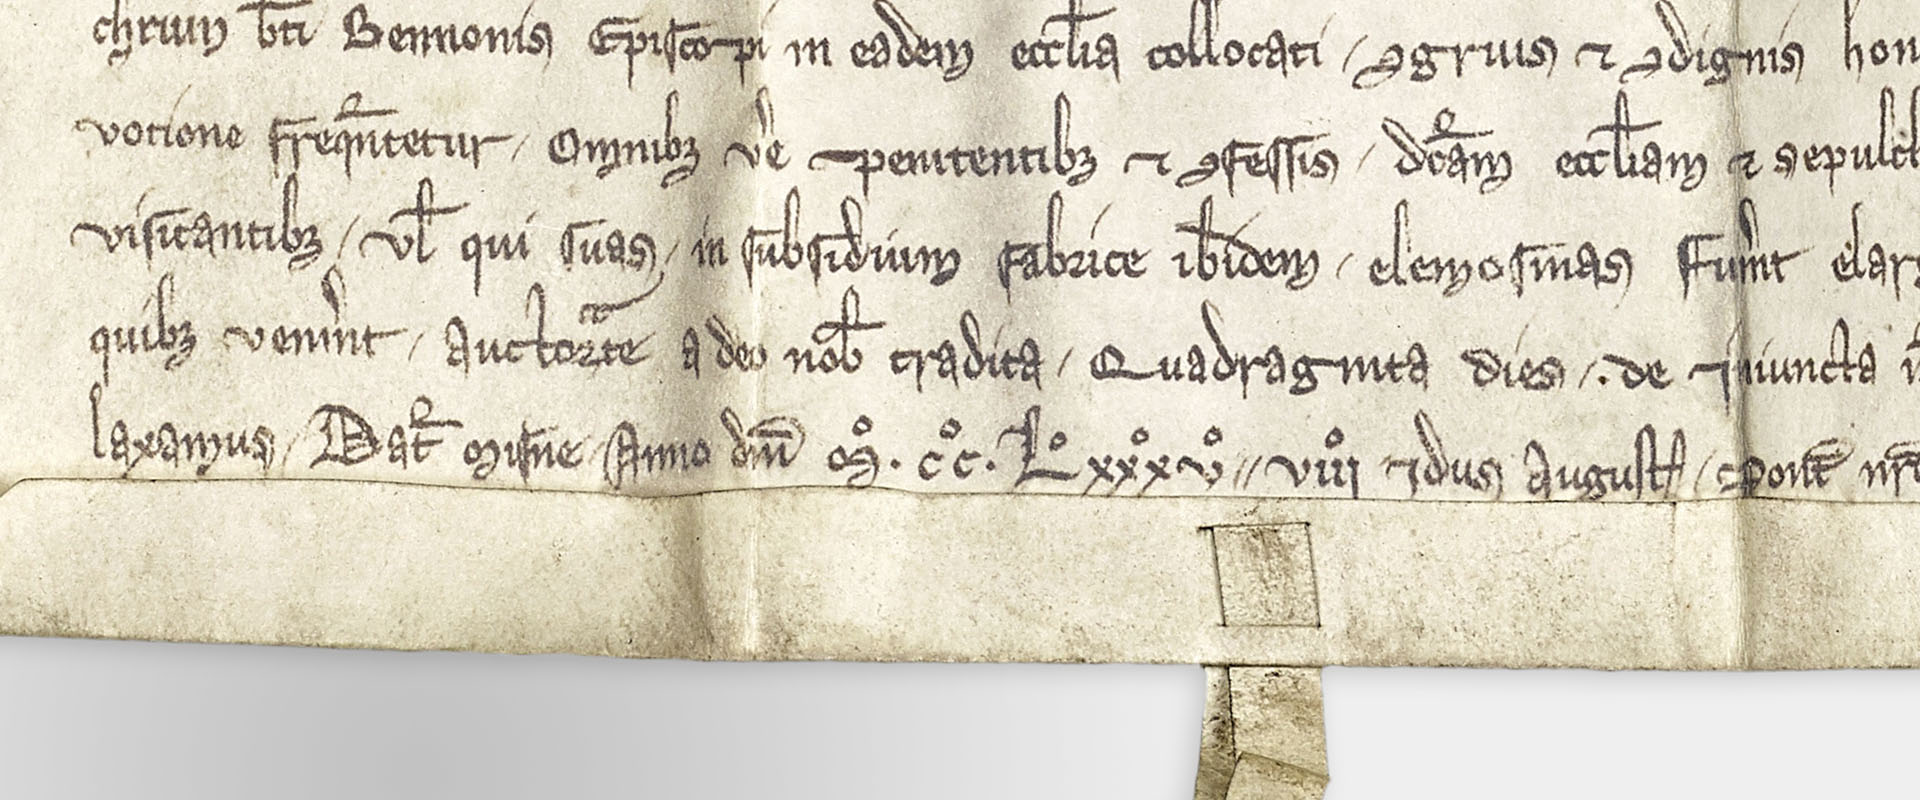 chrum bti Bennonis Episcopi in eadem eccl̄ia collocati / ꝯgruis ⁊ ꝯdignis hon
votione freq̄ntetur / Omnibꝫ v̄e penitentibꝫ ⁊ ꝯfessis / dc̄am eccl̄iam ⁊ sepulch
visitantibꝫ / vl̄ qui suas / in subsidium fabrice ib̄idem / elemosinas fu͛int elarg
quibꝫ ven͛int / auctorit̄ate a deo nob̄ tradita / Quadraginta dies / . de iniuncta
laxamus / Dat̄ Misn̄e Anno dn̄i Mͦ. cͦc. Lͦxxͦxvͦ // viiͦi idus August / Pont̄ nr̄i